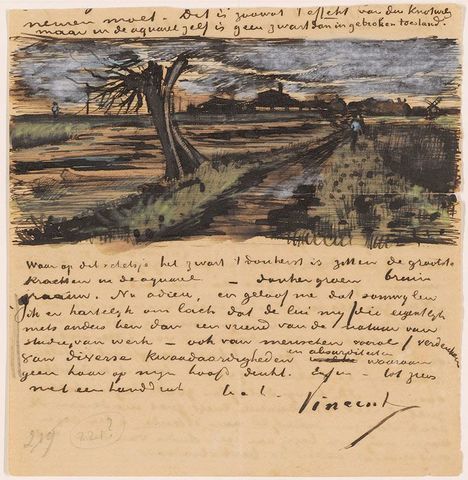 nemen moet. Dit is zoowat 't effect van den Knotwilg
maar in de aquarel zelf is geen zwart dan in gebroken toestand.
Waar op dit schetsje het zwart 't donkerst is zitten de grootste
krachten in de aquarel — donkergroen bruin
graauw. Nu adieu, en geloof me dat somwylen
ik er hartelyk om lach dat de lui my (die eigentlyk
niets anders ben dan een vriend van de natuur van
studie van werk — ook van menschen vooral) verdenken
van diverse kwaadaardigheden en absurditeiten waaraan
geen haar op myn hoofd denkt. Enfin tot ziens
met een handdruk t. à t.
Vincent
219 (221?)